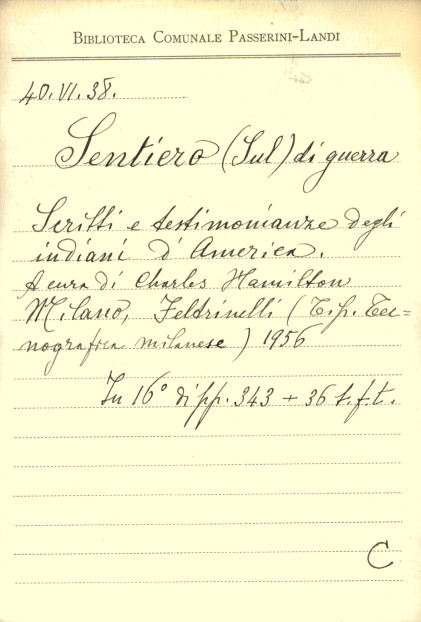 BIBLIOTECA COMUNALE PASSERINI-LANDI
40.VI.38.
Sentiero (Sul) di guerra
Scritti e testimonianze degli
indiani d'America.
A cura di Charles Hamilton
Milano, Feltrinelli (Tip. Tec=
nografica milanese) 1956
In 16° di pp. 343 + 36 t.f.t.
C